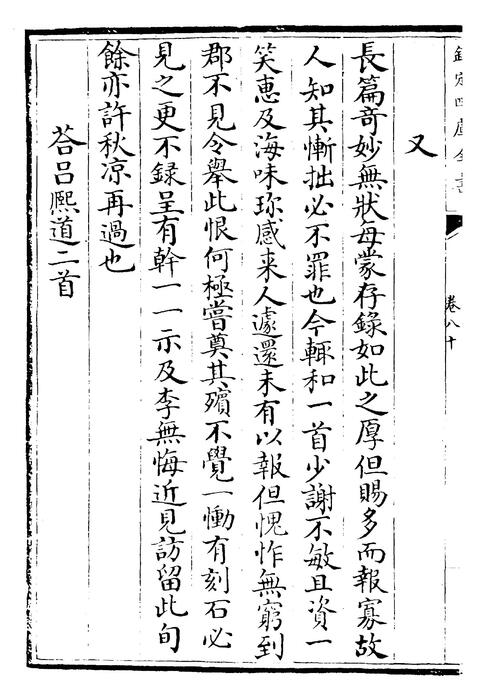 欽定四庫全書
卷八十
又
長篇竒妙無狀每蒙存錄如此之厚但賜多而報寡故
人知其慚拙必不罪也今輒和一首少謝不敏且資一
笑惠及海味珎感来人遽還未有以報但愧怍無窮到
郡不見令舉此恨何極嘗奠其殯不覺一慟有刻石必
見之更不録呈有幹一一示及李無悔近見訪留此旬
餘亦許秋凉再過也
荅吕熈道二首